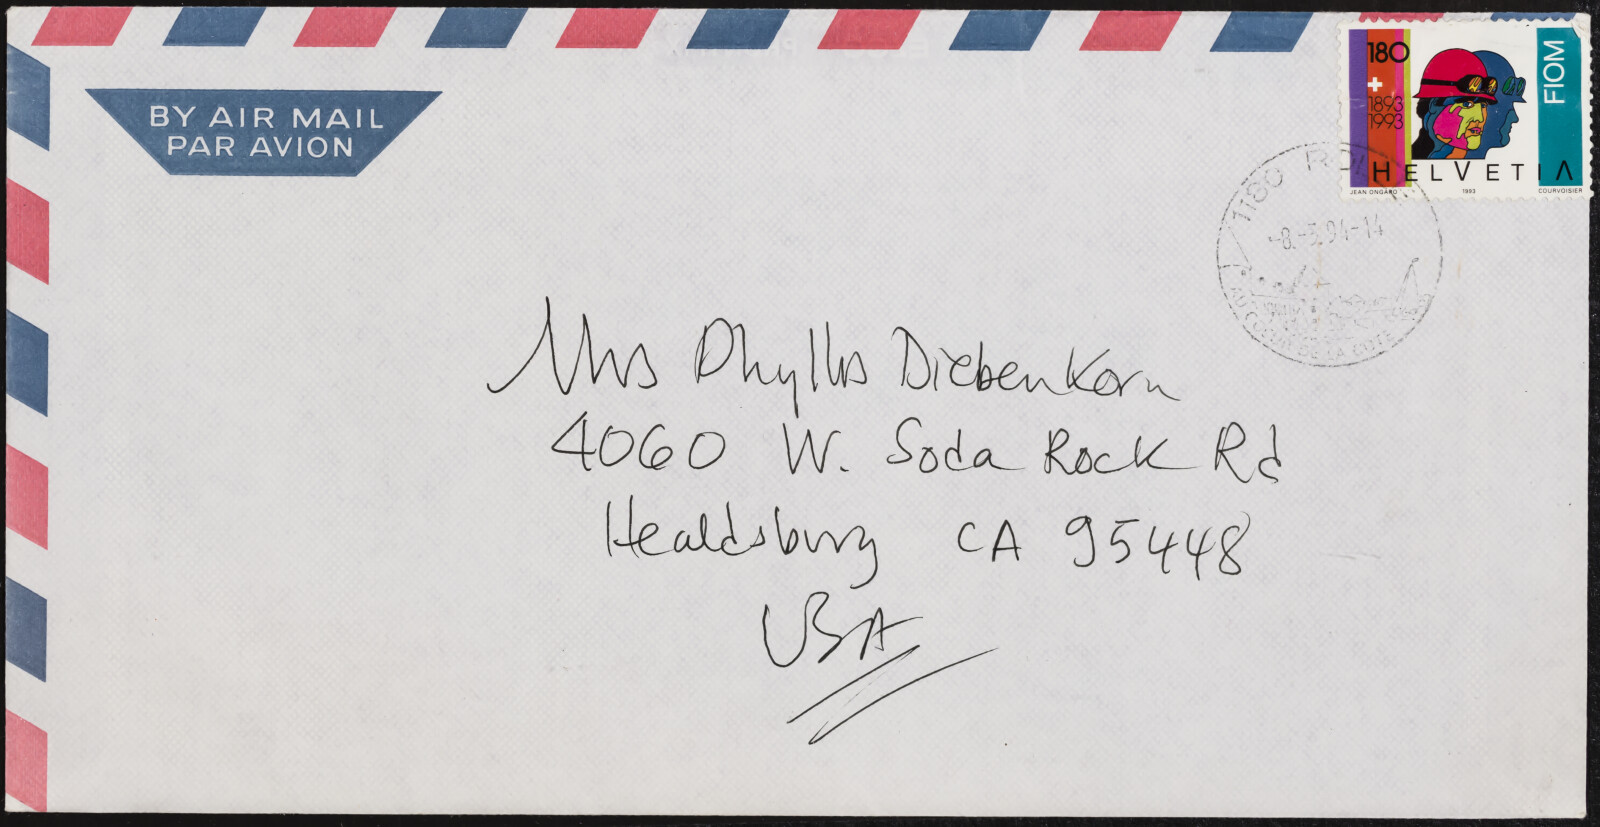 BY AIR MAIL
PAR AVION
180
1893
1993
FIOM
HELVETIA
JEAN ONGARO
1993
COURVOISIER
1180 ROLLE
-8.-3.94-14
AU COEUR DE LA COTE
Mrs Phyllis Diebenkorn
4060 W. Soda Rock Rd
Healdsburg CA 95448
USA